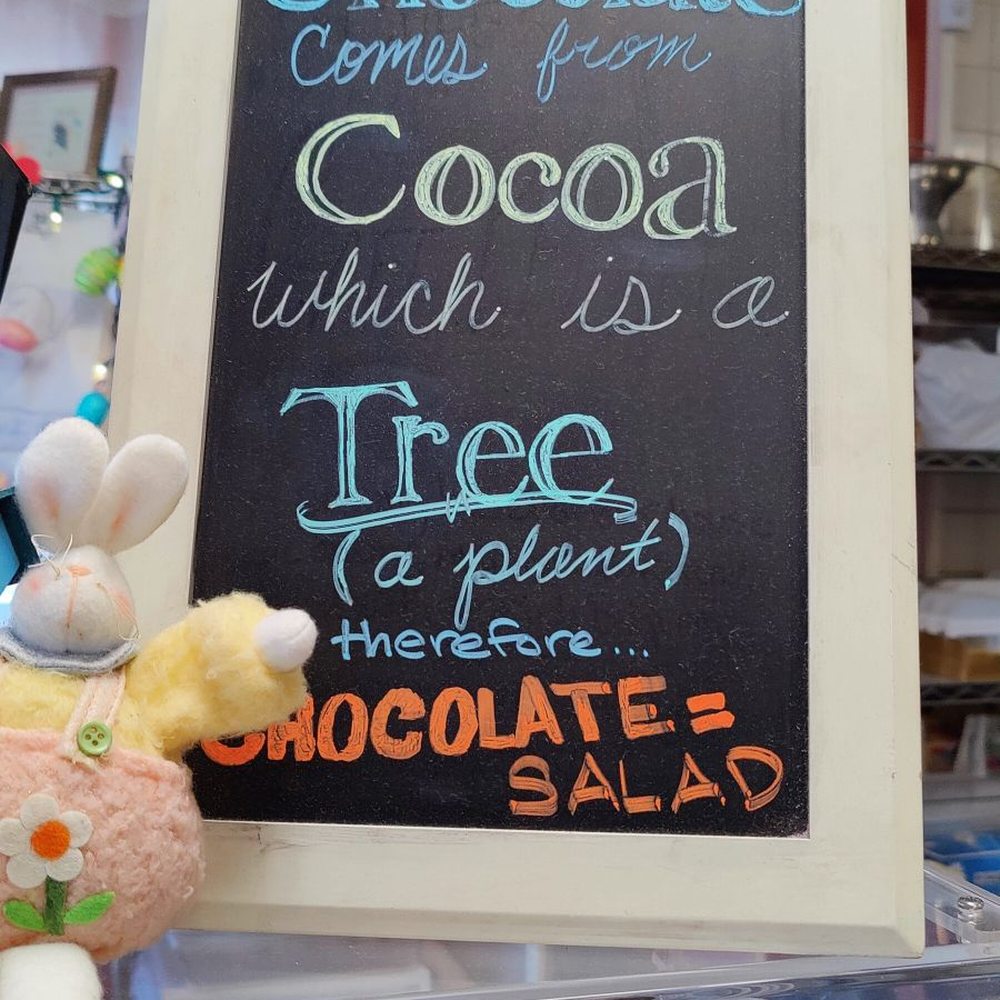 Chocolate
Comes from
Cocoa
which is a
Tree
(a plant)
therefore...
CHOCOLATE =
SALAD